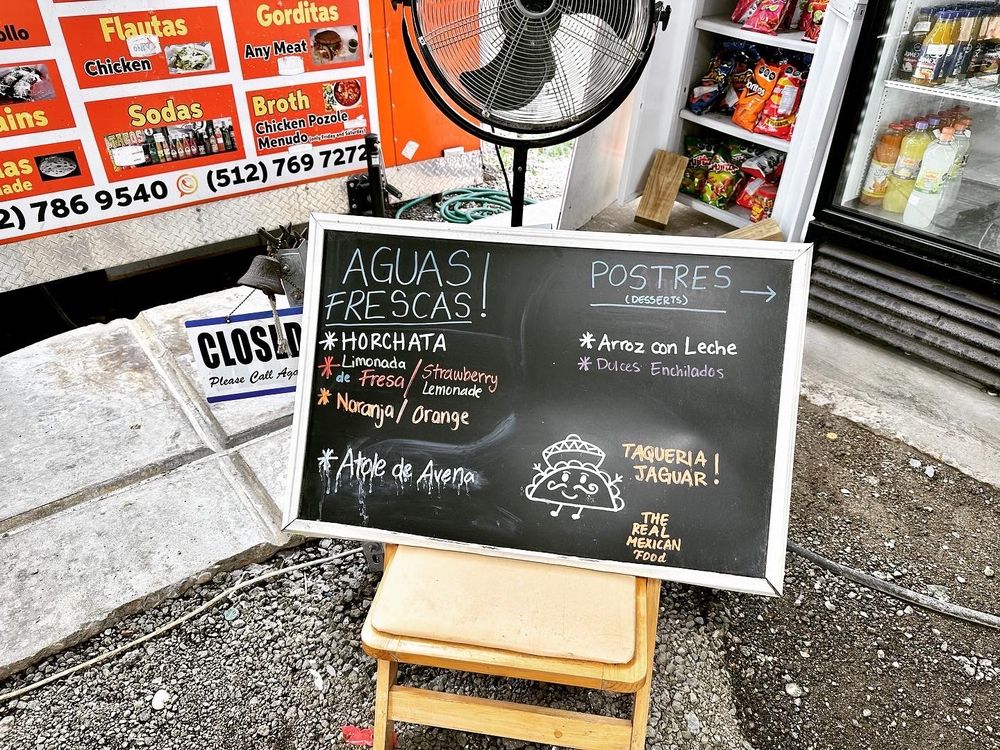 ollo
Flautas
Chicken
Gorditas
Any Meat
ains
Sodas
Broth
Chicken Pozole
Menudo (only Friday and Saturday)
as
ade
2) 786 9540 (512) 769 7272
CLOSED
Please Call Aga
AGUAS
FRESCAS!
* HORCHATA
* Limonada
de Fresa / Strawberry
Lemonade
* Naranja / Orange
* Atole de Avena
POSTRES →
(DESSERTS)
* Arroz con Leche
* Dulces Enchilados
TAQUERIA
JAGUAR!
THE
REAL
MEXICAN
Food
Doritos